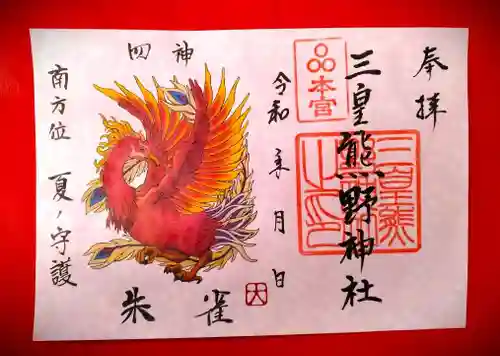 奉拝
三皇熊野神社
本宮
三皇熊
令和 年 月 日
四神
朱雀
南方位 夏ノ守護